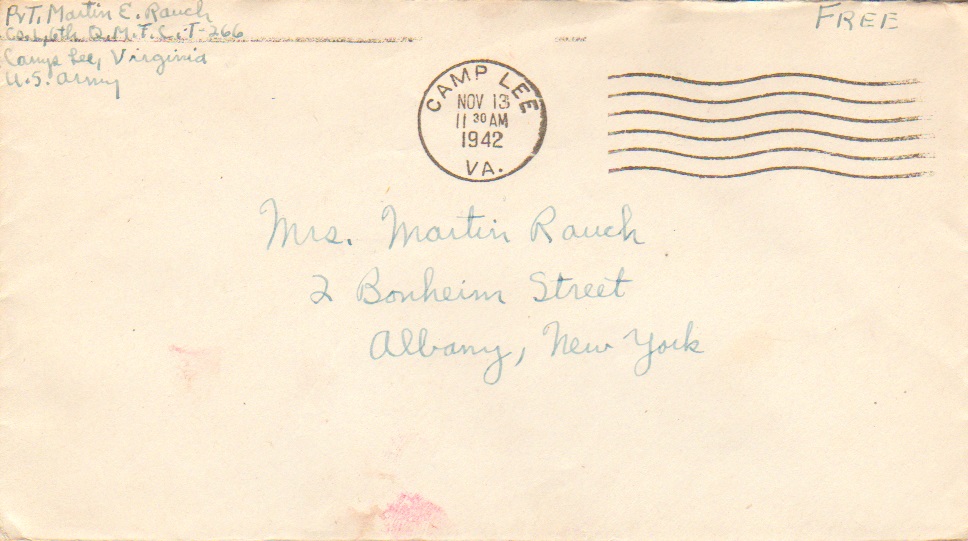 Pvt. Martin E. Rauch
Co. L, 6th Q.M.T.C. T-266
Camp Lee, Virginia
U.S. Army
FREE
CAMP LEE
NOV 13
11 30 AM
1942
VA.
Mrs. Martin Rauch
2 Bonheim Street
Albany, New York